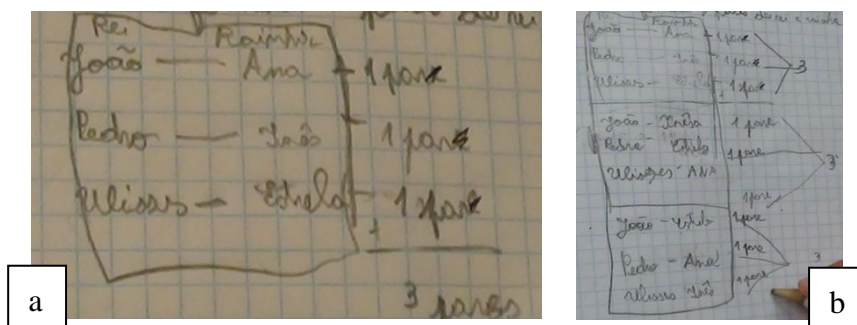 Rei Rainha
João — Ana — 1 par
Pedro — Inês — 1 par
Ulisses — Estrela — 1 par
+
3 pares
a
Rei Rainha
João — Ana — 1 par
Pedro — Inês — 1 par
Ulisses — Estrela + 1 par
3
João - Inês 1 par
Pedro - Estrela 1 par
Ulisses - ANA 1 par
3
João - Estrela 1 par
Pedro - Ana 1 par
Ulisses Inês 1 par
3
b